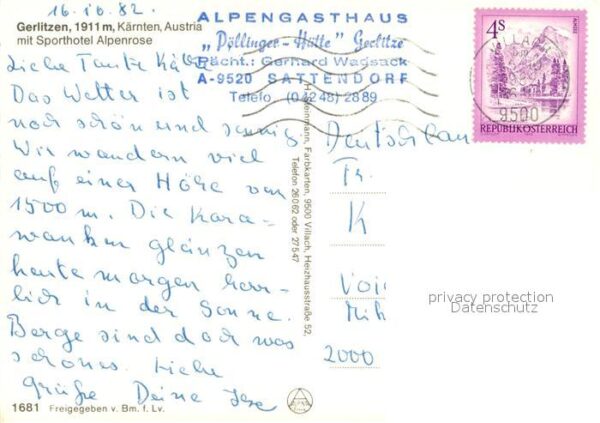 16.10.82.
Gerlitzen, 1911 m, Kärnten, Austria
mit Sporthotel Alpenrose
ALPENGASTHAUS
„Pöllinger-Hütte" Gerlitze
Pächt.: Gerhard Wadsack
A-9520 SATTENDORF
Telefo (04248) 2889
4S
REPUBLIK ÖSTERREICH
9500
Liebe Tante Kä
Das Wetter ist
noch schön und sonnig.
Wir wandern viel
auf einer Höhe von
1500 m. Die Kara-
wanken glänzen
heute morgen herr-
lich in der Sonne.
Berge sind doch was
schönes. Liebe
Grüße Deine
1681 Freigegeben v. Bm. f. Lv.
Wenmann, Farbkarten, 9500 Villach, Herzhausstraße 52,
Telefon 26062 oder 27547
Deutschlan
Fr.
K
Voi
2000
privacy protection
Datenschutz